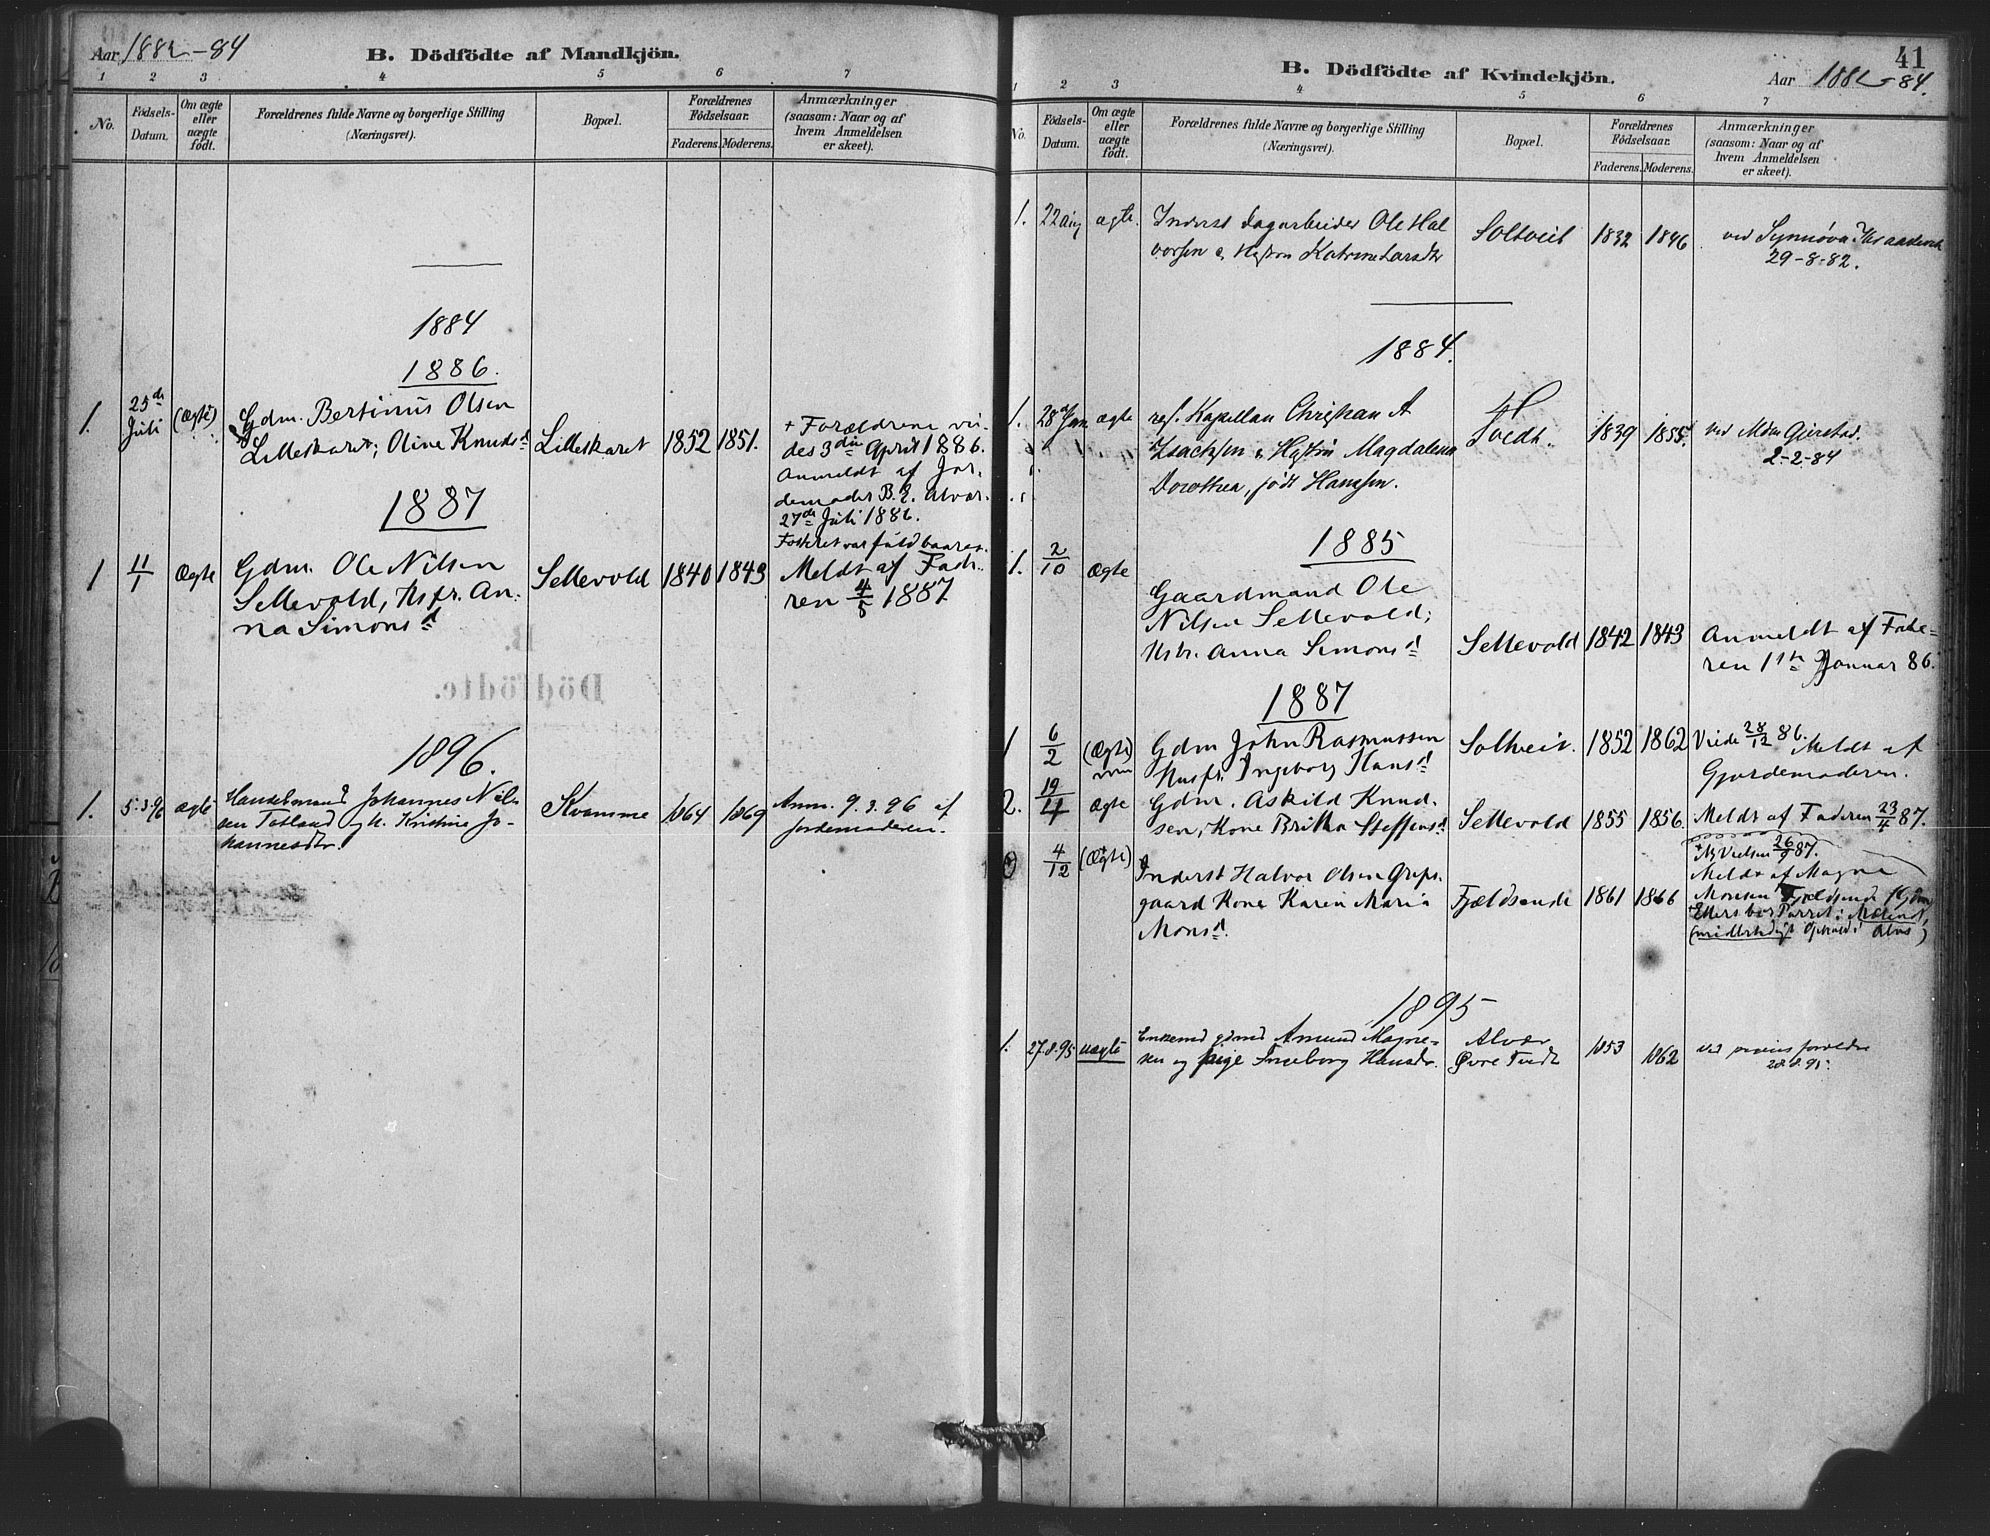 Aar 1882-84
B. Dödfödte af Mandkjön.
1 2 3 4 5 6 7
No.
Födsels-
Datum.
Om ægte
eller
uægte
födt.
Forældrenes fulde Navne og borgerlige Stilling
(Næringsvei).
Bopæl.
Forældrenes
Födselsaar.
Faderens. Moderens.
Anmærkninger
(saasom: Naar og af
hvem Anmeldelsen
er skeet).
1884
1886.
1. 25de Juli (Ægte)
Gdm. Bertinus Olsen
Lilleskaret; Oline Knudsd
Lilleskaret 1852 1851.
+ Forældrene vi-
des 3die April 1886.
Anmeldt af Jor-
demoder B. E. Alvær.
27de Juli 1886.
Fosteret var fuldbaaret.
1887
1 11/1 Ægte
Gdm. Ole Nilsen
Sellevold, Hsfr. An-
na Simonsd
Sellevold 1840 1843
Meldt af Fade-
ren 4/5 1887
B.
Dödfödte.
1896.
1. 5.3.96 ægte
Handelsmand Johannes Nil-
sen Totland og h. Kristine Jo-
hannesdtr.
Kvamme 1864 1869
Anm. 9.3.96 af
jordemoderen.
41
B. Dödfödte af Kvindekjön.
Aar 1882-84.
1 2 3 4 5 6 7
No.
Födsels-
Datum.
Om ægte
eller
uægte
födt.
Forældrenes fulde Navne og borgerlige Stilling
(Næringsvei).
Bopæl.
Forældrenes
Födselsaar.
Faderens. Moderens.
Anmærkninger
(saasom: Naar og af
hvem Anmeldelsen
er skeet).
1. 22 aug ægte.
Inderst Dagarbeider Ole Hal
vorsen & Hustru Katrine Larsdtr
Soltveit 1832 1846
ved Synnøva
29-8-82.
1884.
1. 28 Jan ægte
res. Kapellan Christian A
Isachsen & Hustru Magdalena
Dorothea, født Hanssen.
1839 1855.
ved Mdm Gjerstad.
2-2-84
1885
1. 2/10 Ægte
Gaardmand Ole
Nilsen Sellevold;
Hstr. Anna Simonsd
Sellevold 1842 1843
Anmeldt af Fade-
ren 11te Januar 86.
1887
1 6/2 (Ægte)
Gdm John Rasmussen
Husfr. Ingeborg Hansd
Soltveit. 1852 1862
Viede 28/12 86. Meldt af
Gjordemoderen.
2. 19/4 Ægte
Gdm. Askild Knud-
sen, Kone Britha Steffensd
Sellevold 1855 1856.
Meldt af Faderen 23/4 87.
4/12 (Ægte)
Inderst Halvor Olsen Greps-
gaard Kone Karen Maria
Monsd.
Fjældsende 1861 1866
Vielsen 26/9 87.
Meldt af Magne
Monsen Fjeldsende
Ellers bor Parret i
(midlertidigt Ophold
1895
1. 27.8.95 uægte
Enkemd gdmd Amund Magne-
sen og pige Ingeborg Hansdr.
Alvær
Øvre Tvedt
1853 1862
ved pigens forældre
28.8.95.